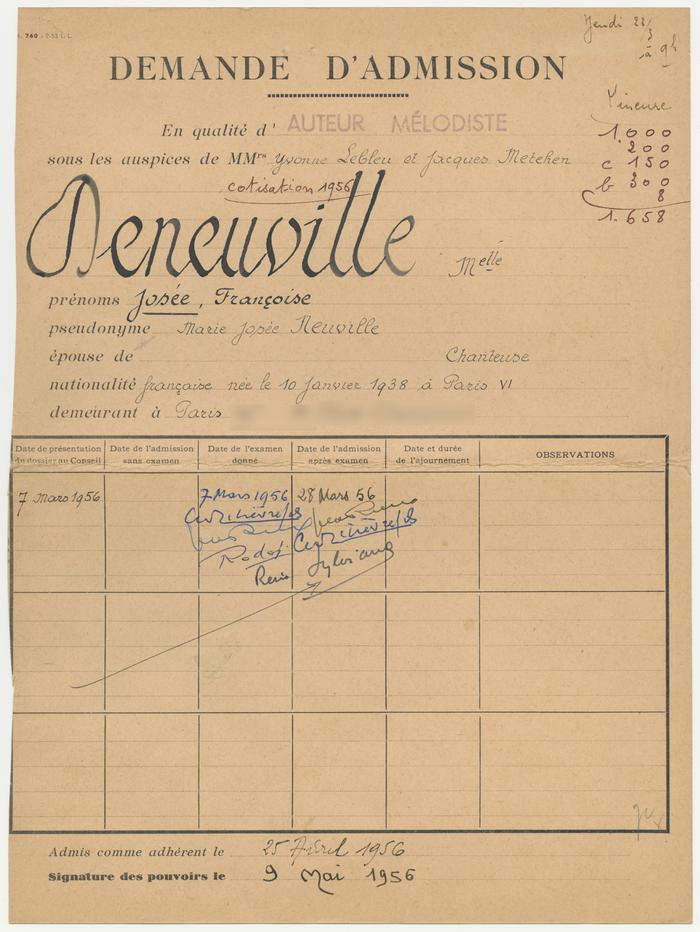 Jeudi 22/3
à 9h
DEMANDE D'ADMISSION
En qualité d' AUTEUR MÉLODISTE
sous les auspices de MMrs Yvonne Lebleu et Jacques Metehen
1.000
200
c 150
b 300
8
1.658
cotisation 1956
Deneuville Melle
prénoms Josée, Françoise
pseudonyme Marie Josée Neuville
épouse de Chanteuse
nationalité française née le 10 Janvier 1938 à Paris VI
demeurant à Paris
Date de présentation du dossier au Conseil
Date de l'admission sans examen
Date de l'examen donné
Date de l'admission après examen
Date et durée de l'ajournement
OBSERVATIONS
7 Mars 1956 7 Mars 1956 28 Mars 56
Admis comme adhérent le 25 Avril 1956
Signature des pouvoirs le 9 Mai 1956